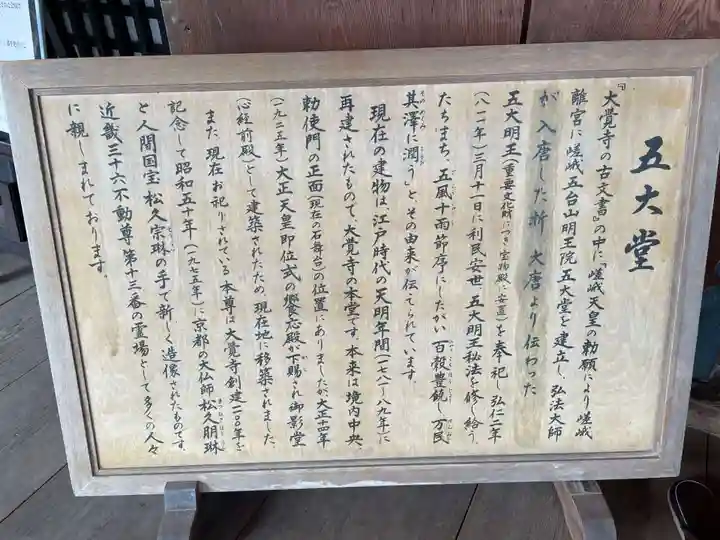 五大堂
『大覺寺の古文書』の中に「嵯峨天皇の勅願により嵯峨
離宮に嵯峨五台山明王院五大堂を建立し、弘法大師
が入唐した折 大唐より伝わった
五大明王(重要文化財につき宝物殿に安置)を奉祀し弘仁二年
(八一一年)三月十一日に利民安世・五大明王秘法を修し給う。
たちまち、五風十雨節序にしたがい 百穀豊饒し 万民
其澤に潤う」と、その由来が伝えられています。
現在の建物は、江戸時代の天明年間(一七八一~八九年)に
再建されたもので、大覺寺の本堂です。本来は境内中央、
勅使門の正面(現在の石舞台)の位置にありましたが大正十四年
(一九二五年)大正天皇即位式の饗応殿が下賜され御影堂
(心経前殿)として建築されたため、現在地に移築されました。
また、現在お祀りされている本尊は大覺寺創建一一〇〇年を
記念して昭和五十年(一九七五年)に京都の大仏師松久朋琳
と人間国宝 松久宗琳の手で新しく造像されたものです。
近畿三十六不動尊 第十三番の霊場として多くの人々
に親しまれております。